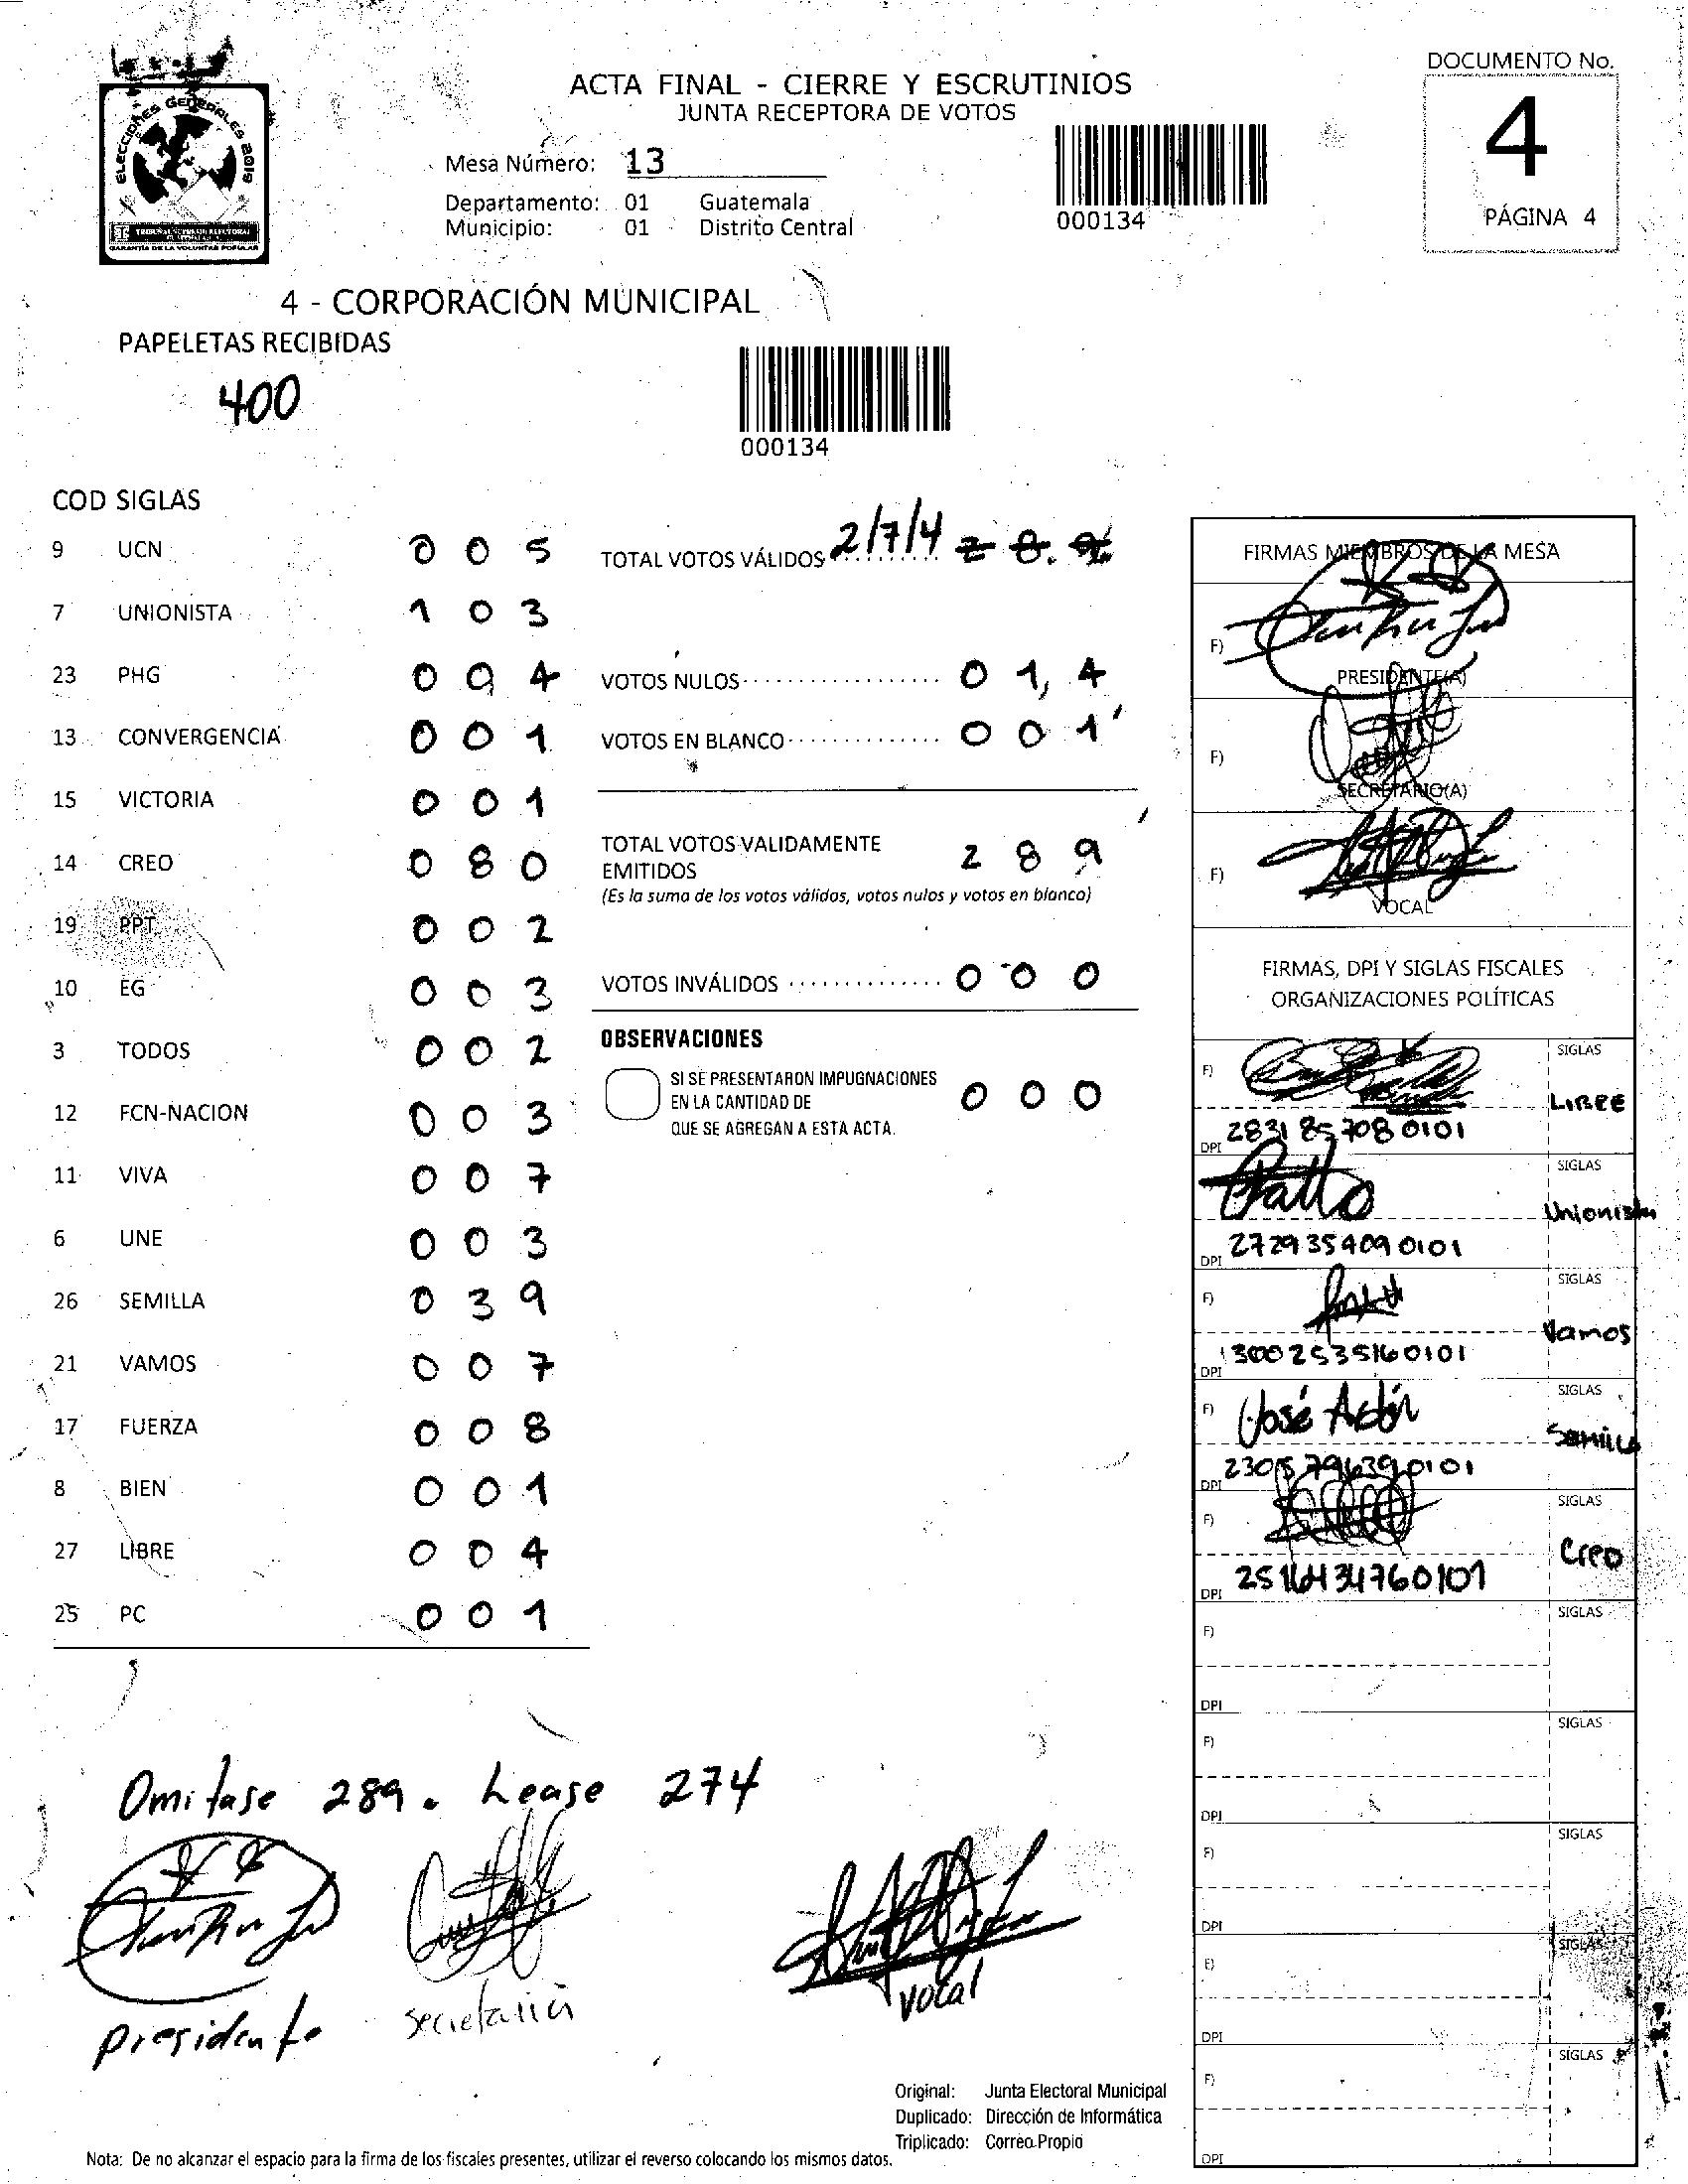 ELECCIONES GENERALES 2019
TRIBUNAL SUPREMO ELECTORAL
GARANTÍA DE LA VOLUNTAD POPULAR
ACTA FINAL - CIERRE Y ESCRUTINIOS
JUNTA RECEPTORA DE VOTOS
Mesa Número: 13
Departamento: 01 Guatemala
Municipio: 01 Distrito Central
000134
DOCUMENTO No.
4
PÁGINA 4
4 - CORPORACIÓN MUNICIPAL
PAPELETAS RECIBIDAS
400
000134
COD SIGLAS
9 UCN 0 0 5
7 UNIONISTA 1 0 3
23 PHG 0 0 4
13 CONVERGENCIA 0 0 1
15 VICTORIA 0 0 1
14 CREO 0 8 0
19 PPT 0 0 2
10 EG 0 0 3
3 TODOS 0 0 2
12 FCN-NACION 0 0 3
11 VIVA 0 0 7
6 UNE 0 0 3
26 SEMILLA 0 3 9
21 VAMOS 0 0 7
17 FUERZA 0 0 8
8 BIEN 0 0 1
27 LIBRE 0 0 4
25 PC 0 0 1
TOTAL VOTOS VÁLIDOS 2/7/4 2 8 9
VOTOS NULOS 0 1, 4
VOTOS EN BLANCO 0 0 1
TOTAL VOTOS VALIDAMENTE
EMITIDOS 2 8 9
(Es la suma de los votos válidos, votos nulos y votos en blanco)
VOTOS INVÁLIDOS 0 0 0
OBSERVACIONES
SI SE PRESENTARON IMPUGNACIONES
EN LA CANTIDAD DE 0 0 0
QUE SE AGREGAN A ESTA ACTA.
FIRMAS MIEMBROS DE LA MESA
F)
PRESIDENTE(A)
F)
SECRETARIO(A)
F)
VOCAL
FIRMAS, DPI Y SIGLAS FISCALES
ORGANIZACIONES POLÍTICAS
F) SIGLAS
LIBRE
DPI 2831 85708 0101
SIGLAS
Unionista
DPI 2729354090101
F) SIGLAS
Vamos
DPI 3002535160101
F) José Adán SIGLAS
Semilla
DPI 2305796390101
F) SIGLAS
Creo
DPI 2516434760101
F) SIGLAS
DPI
F) SIGLAS
DPI
F) SIGLAS
DPI
F) SIGLAS
DPI
F) SIGLAS
DPI
Omitase 289. Lease 274
presidente
secretaria
vocal
Original: Junta Electoral Municipal
Duplicado: Dirección de Informática
Triplicado: Correo Propio
Nota: De no alcanzar el espacio para la firma de los fiscales presentes, utilizar el reverso colocando los mismos datos.